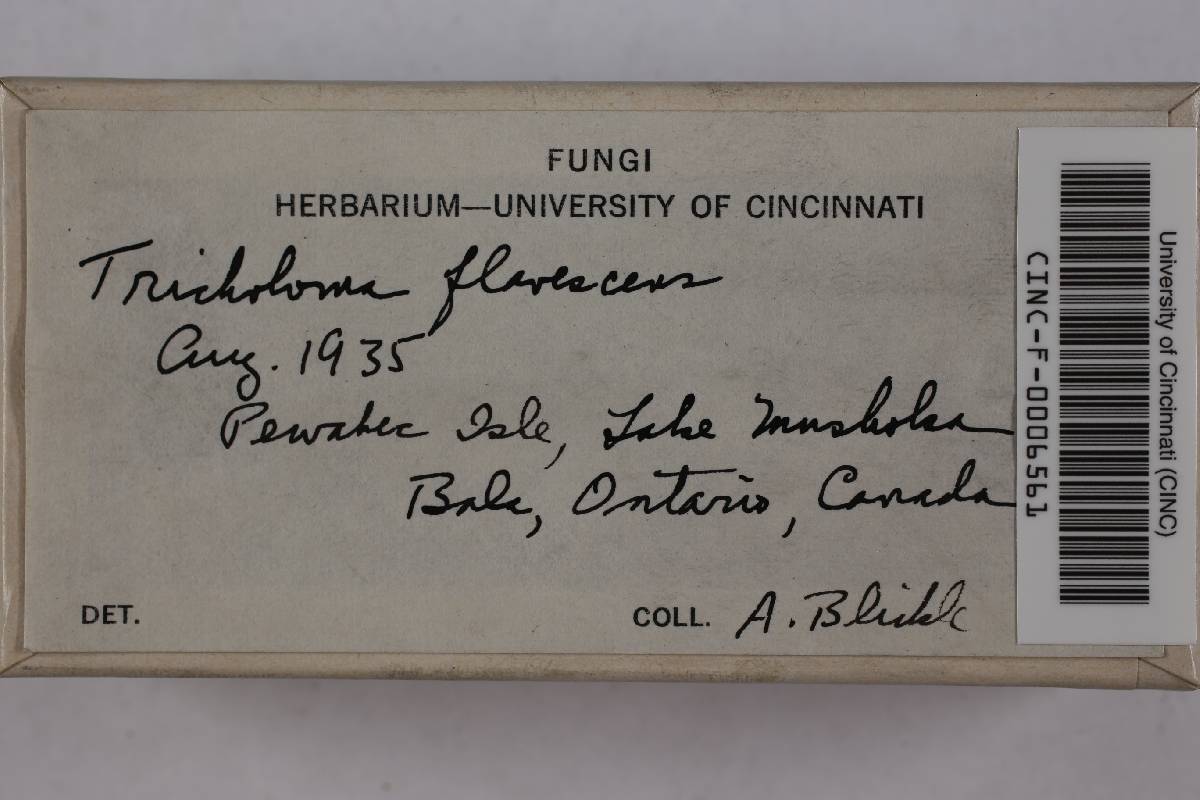 FUNGI
HERBARIUM—UNIVERSITY OF CINCINNATI
Tricholoma flavescens
Aug. 1935
Pewabec Isle, Lake Muskoka
Bala, Ontario, Canada
DET.
COLL. A. Blickle
University of Cincinnati (CINC)
CINC-F-0006561